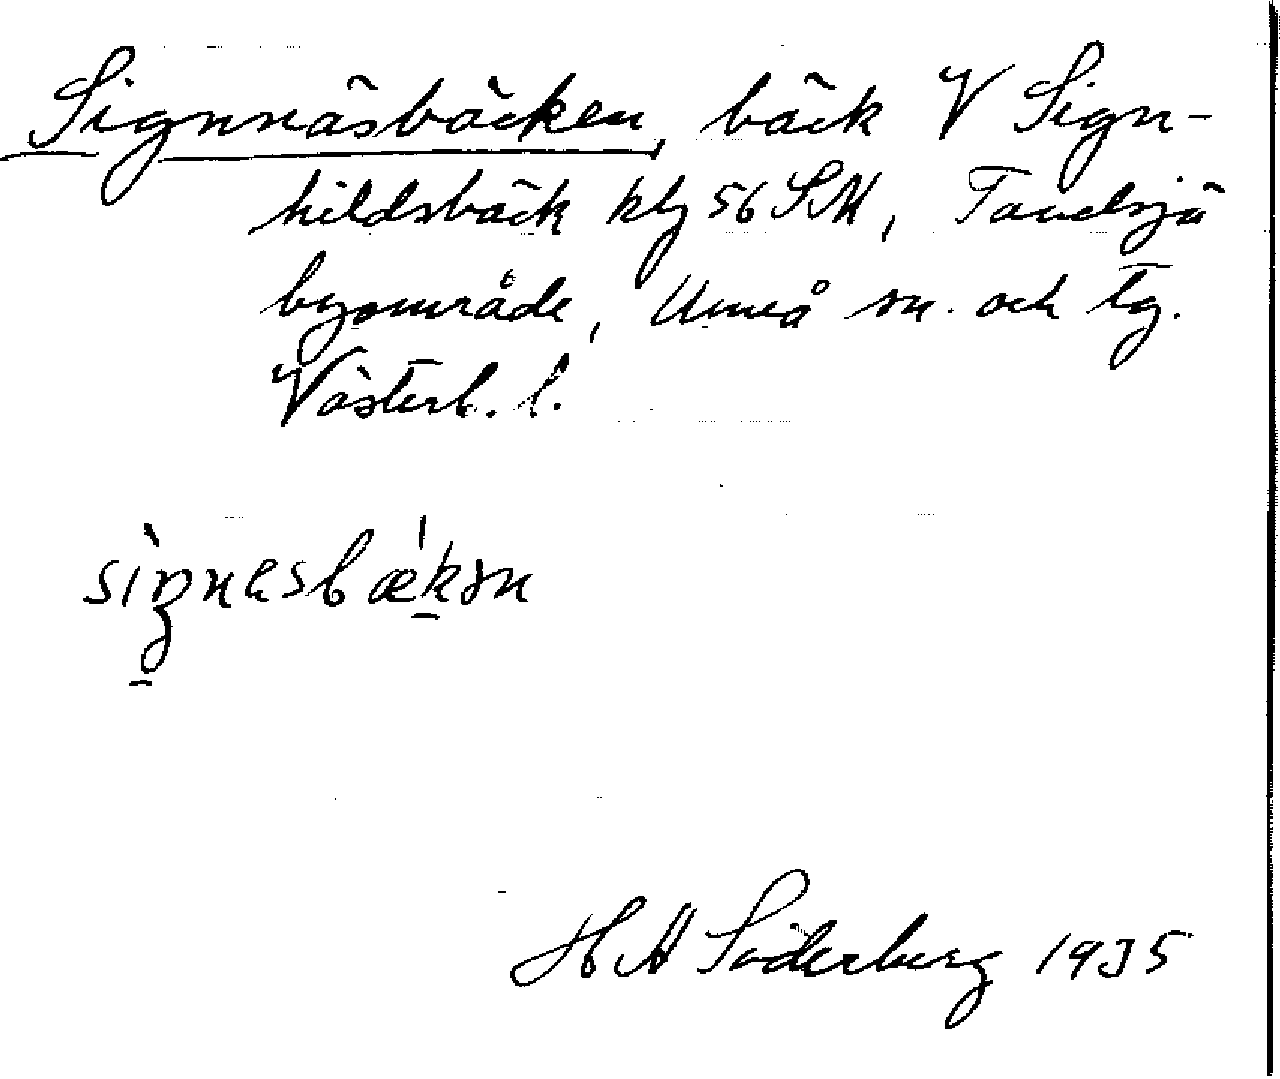 Signnäsbäcken, bäck V Sign-
hildsbäck klg 56 SM, Tavelsjö
byområde, Umeå sn. och tg.
Västerb. l.
H A Söderberg 1935